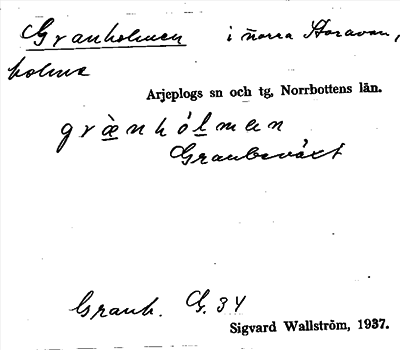 Granholmen i norra Storavan,
holme
Arjeplogs sn och tg, Norrbottens län.
grànhólmen
Granbeväxt
Granb. G. 34
Sigvard Wallström, 1937.